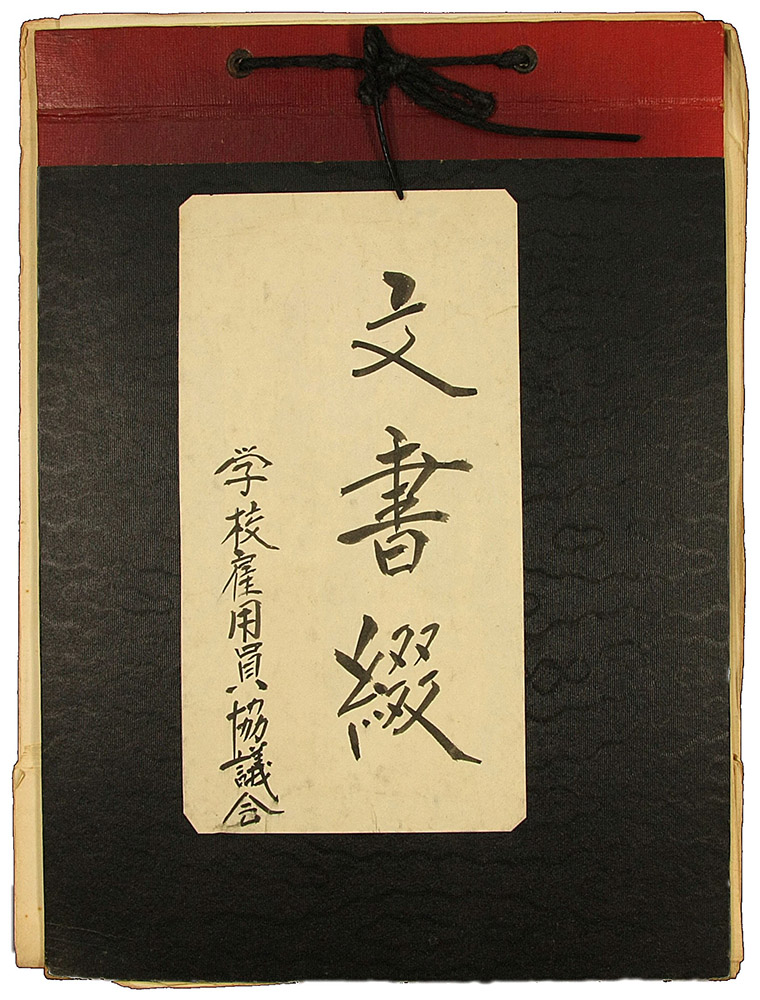 文書綴
学校雇用員協議会